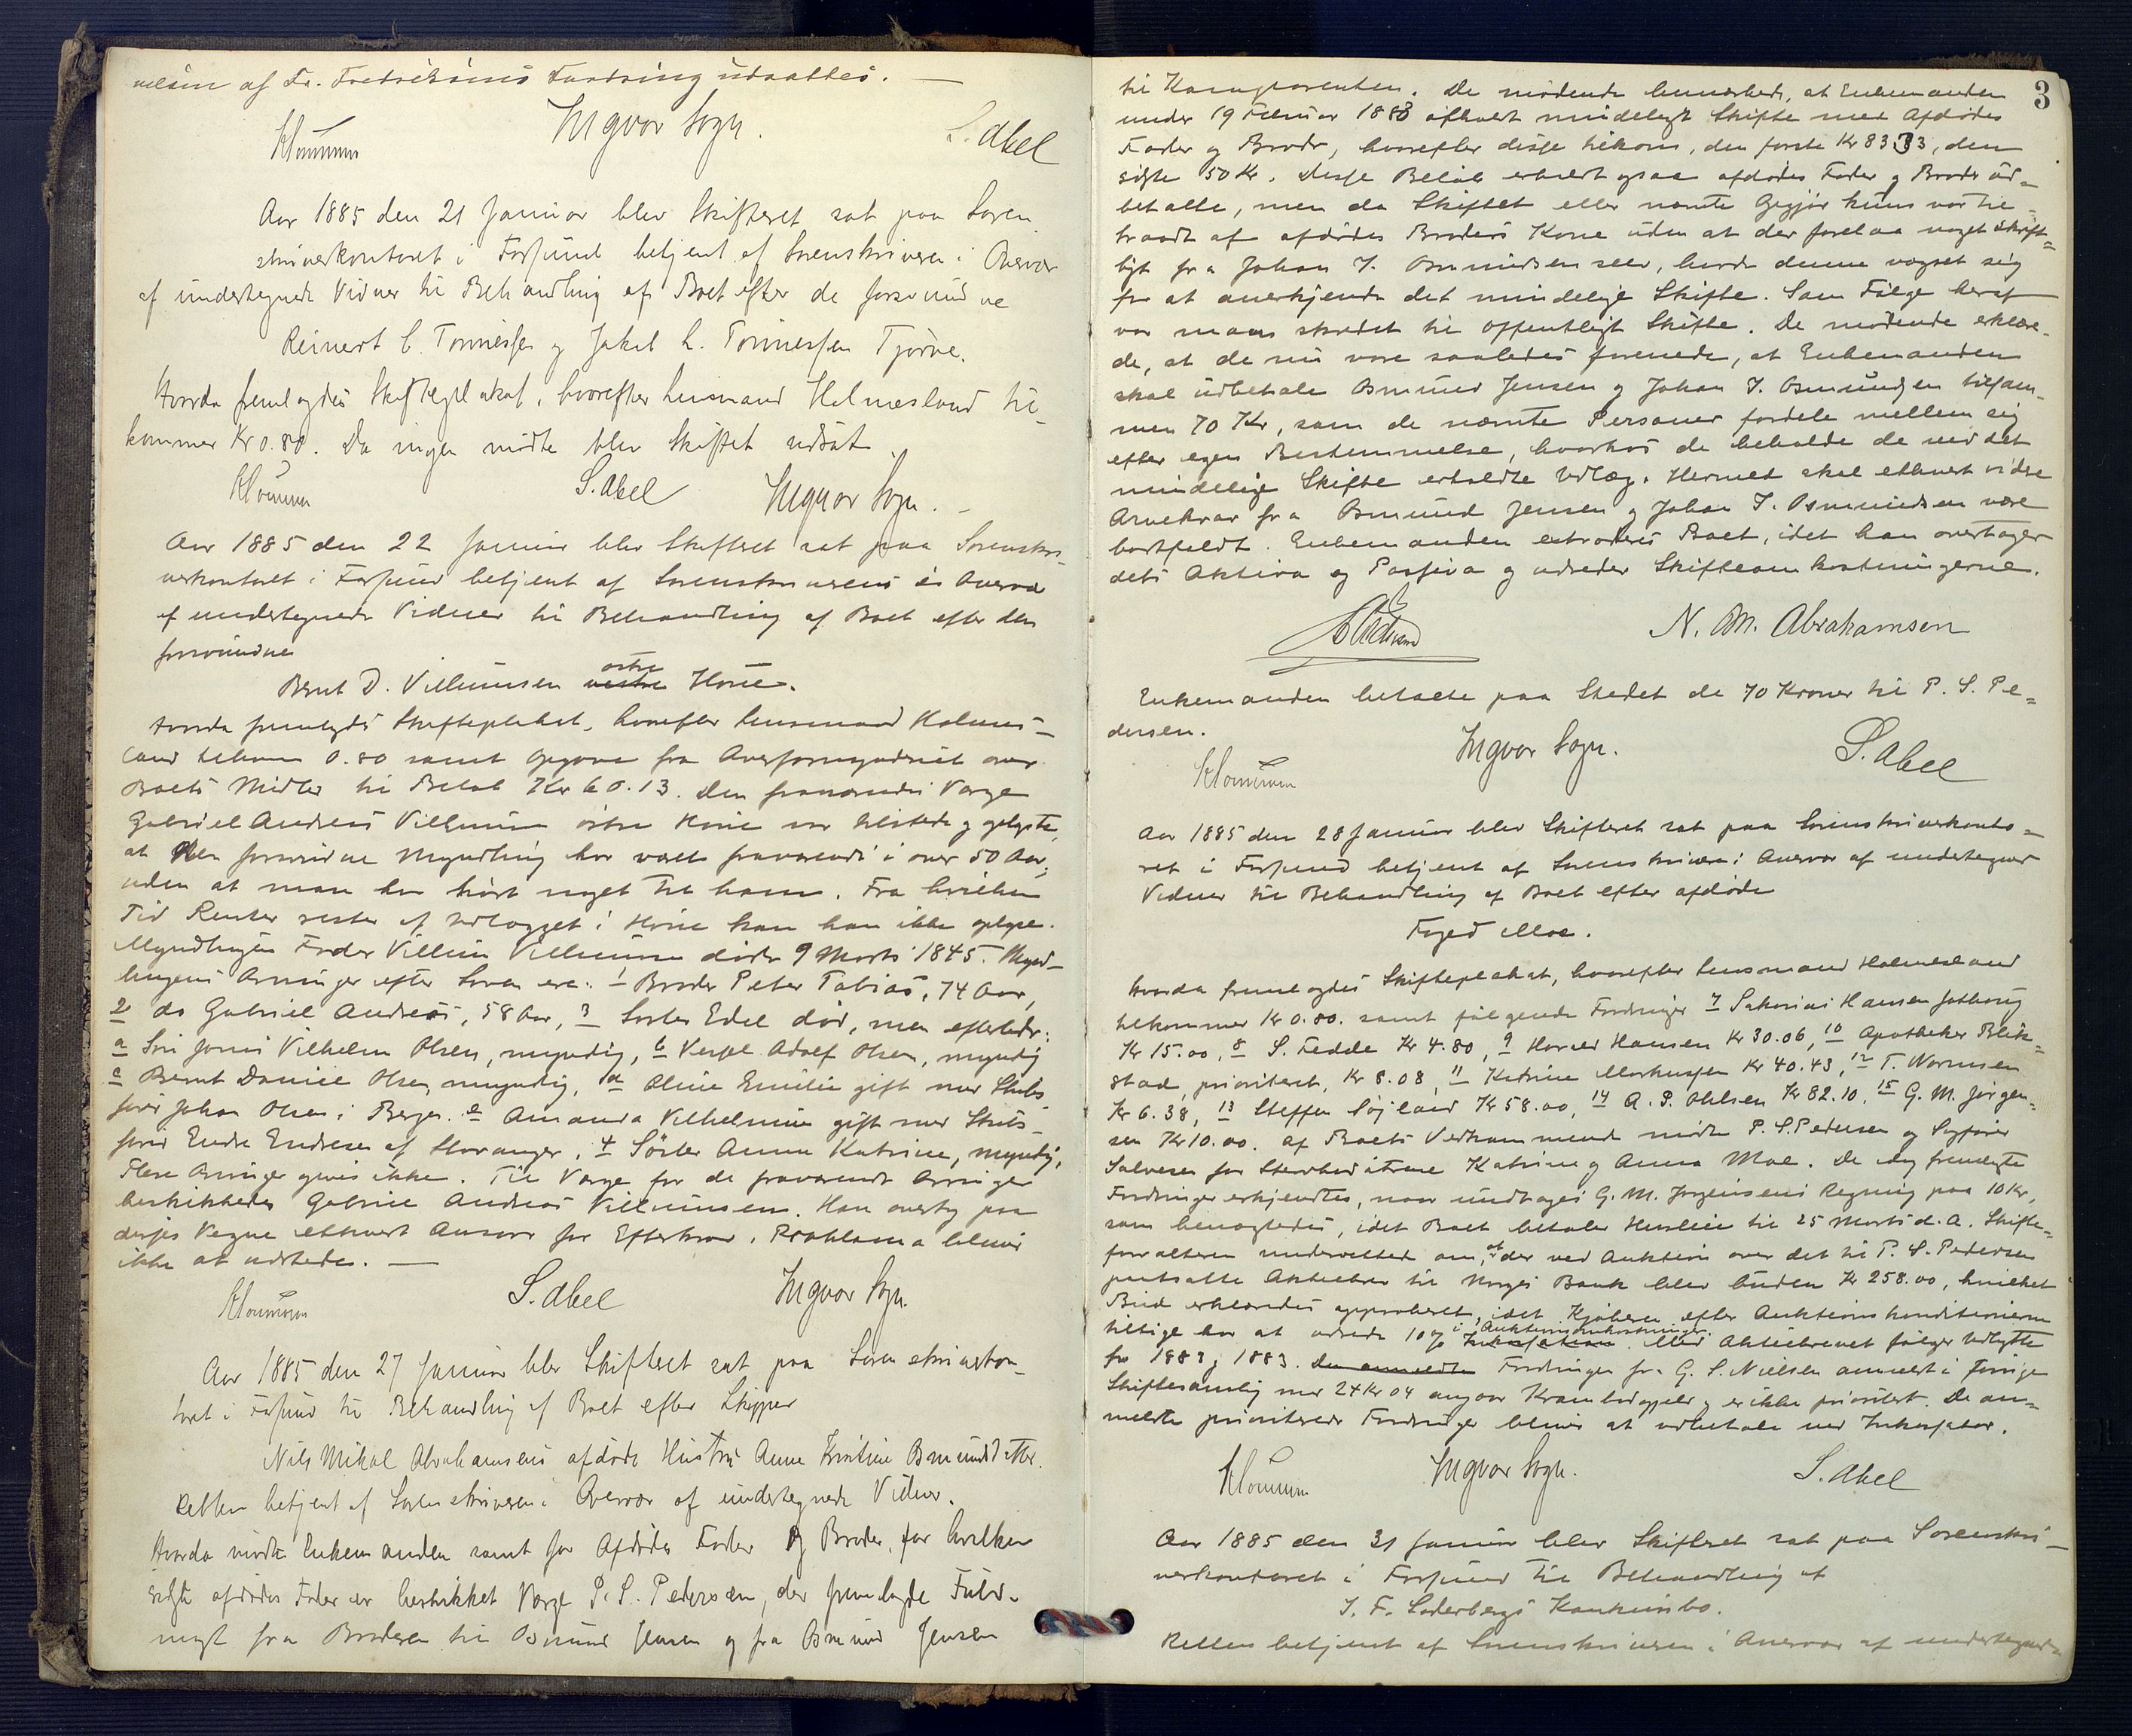 af Fr. Fredriksens Fordring udsattes. —
Ingvar Sogn.
S. Abel
Aar 1885 den 21 Januar blev Skifteret sat paa Soren
skriverkontoret i Farsund betjent af Sorenskriveren i Overvær
af undertegnede Vidner til Behandling af Boet efter de forsvundne
Reinert C. Tønnessen og Jakob L. Tønnessen Tjørve.
Hvorda fremlagdes Skifteplakat, hvorefter Lensmand Holmesland til-
kommer Kr 0.80. Da ingen mødte blev Skiftet udsat
S. Abel Ingvar Sogn. —
Aar 1885 den 22 Januar blev Skifteret sat paa Sorenskri-
verkontoret i Farsund betjent af Sorenskriverens i Overvær
af undertegnede Vidner til Behandling af Boet efter den
forsvundne
Bernt D. Villumsen vestre østre Hørie.
Hvorda fremlagdes Skifteplakat, hvorefter Lensmand Holmes-
land tilkom 0.80 samt Opgave fra Overformynderiet over
Boets Midler til Beløb Kr 60.13. Den fraværendes Værge
Gabriel Andreas Villumsen østre Hørie var tilstede og oplyste,
at den forsvundne Myndling har været fraværende i over 50 Aar,
uden at man har hørt noget til ham. Fra hvilken
Tid Renter rester af Udlægget i Hørie kan han ikke oplyse.
Myndlingens Fader Villum Villumsen døde 9 Marts 1845. Mynd-
lingens Arvinger efter Loven ere: 1 Broder Peter Tobias, 74 Aar,
2 do Gabriel Andreas, 58 Aar, 3 Søster Edel død, men efterladt:
a Søn Jonas Vilhelm Olsen, myndig, b Adolf Olsen, myndig
c Bernt Daniel Olsen, myndig, d Oline Emilie gift med Skibs-
fører Johan Olsen i Bergen. e Amanda Vilhelmine gift med Skibs-
fører Endre Endresen af Stavanger. 4 Søster Anna Katrine, myndig,
Flere Arvinger gives ikke. Til Værge for de fraværende Arvinger
beskikkedes Gabriel Andreas Villumsen. Han overtog paa
disses Vegne ethvert Ansvar for Efterkrav. Proklama bliver
ikke at udstede. —
S. Abel Ingvar Sogn.
Aar 1885 den 27 Januar blev Skifteret sat paa Sorenskriverkon-
toret i Farsund til Behandling af Boet efter Skipper
Nils Mikal Abrahamsens afdøde Hustru Anne Kristine Osmundsdatter.
Retten betjent af Sorenskriveren i Overvær af undertegnede Vidner.
Hvorda mødte Enkemanden samt for Afdødes Fader og Broder, for hvilken
sidste afdødes Fader er beskikket Værge P. S. Pedersen, der fremlagde Fuld-
magt fra Broderen til Osmund Jensen og fra Osmund Jensen
3
til Komparenten. De mødende bemærkede, at Enkemanden
under 19 Februar 1883 afholdt mindeligt Skifte med Afdødes
Fader og Broder, hvorefter disse tilkom, den første Kr 83.33, den
sidste 50 Kr. Disse Beløb erholdt ogsaa afdødes Fader og Broder ud-
betalte, men da Skiftet eller nævnte Opgjør kuns var til-
traadt af afdødes Broders Kone uden at der forelaa noget Skrift-
ligt fra Johan J. Osmundsen selv, havde denne vægret sig
for at anerkjende det mindelige Skifte. Som Følge heraf
var man skredet til offentligt Skifte. De mødende erklære-
de, at de nu vare saaledes forenede, at Enkemanden
skal udbetale Osmund Jensen og Johan J. Osmundsen tilsam-
men 70 Kr, som de nævnte Personer fordele mellem sig
efter egen Bestemmelse, hvorhos de beholde de ved det
mindelige Skifte erholdte Udlæg. Hermed skal ethvert videre
Arvekrav fra Osmund Jensen og Johan J. Osmundsen være
bortfaldt. Enkemanden extraderes Boet, idet han overtager
dets Aktiva og Passiva og udreder Skifteomkostningerne.
N. M. Abrahamsen
Enkemanden betalte paa Stedet de 70 Kroner til P. S. Pe-
dersen.
Ingvar Sogn. S. Abel
Aar 1885 den 28 Januar blev Skifteret sat paa Sorenskriverkonto-
ret i Farsund betjent af Sorenskriveren i Overvær af undertegnede
Vidner til Behandling af Boet efter afdøde
Foged Moe.
Hvorda fremlagdes Skifteplakat, hvorefter Lensmand Holmesland
tilkommer Kr 0.80. samt følgende Fordringer 7 Sakarias Hansen
Kr 15.00, 8 S. Fedde Kr 4.80, 9 Hansen Kr 30.06, 10 Apotheker Blik-
stad, prioriteret, Kr 8.08, 11 Katrine Markussen Kr 40.43, 12 T.
Kr 6.38, 13 Steffen Kr 58.00, 14 A. P. Ohlsen Kr 82.10, 15 G. M. Jørgen-
sen Kr 10.00. Af Boets Vedkommende mødte P. S. Pedersen og Sagfører
Salvesen for Katrine og Anna Moe. De idag fremlagte
Fordringer erkjendtes, naar undtages G. M. Jørgensens Regning paa 10 Kr,
som benægtedes, idet Boet betaler Husleie til 25 Marts d. A. Skifte-
forvalteren underrettede om, at der ved Auktion over det til P. S. Pedersen
pantsatte Aktiebrev til Norges Bank blev buden Kr 258.00, hvilket
Bud erklæredes approberet, idet Kjøberen efter Auktionskonditionerne
tillige har at udrede 10% i Auktionsomkostninger. Med Aktiebrevet følger Udbytte
for 1882 og 1883. Den anmeldte Fordringen fra G. S. Nielsen anmeldt i forrige
Skiftesamling med 24 Kr 04 angaar Krambodgjeld og er ikke prioritert. De an-
meldte prioriterede Fordringer bliver at udbetale ved Inkassator.
Ingvar Sogn. S. Abel
Aar 1885 den 31 Januar blev Skifteret sat paa Sorenskri-
verkontoret i Farsund til Behandling af
J. F. Søderbergs Konkursbo.
Retten betjent af Sorenskriveren i Overvær af undertegnede